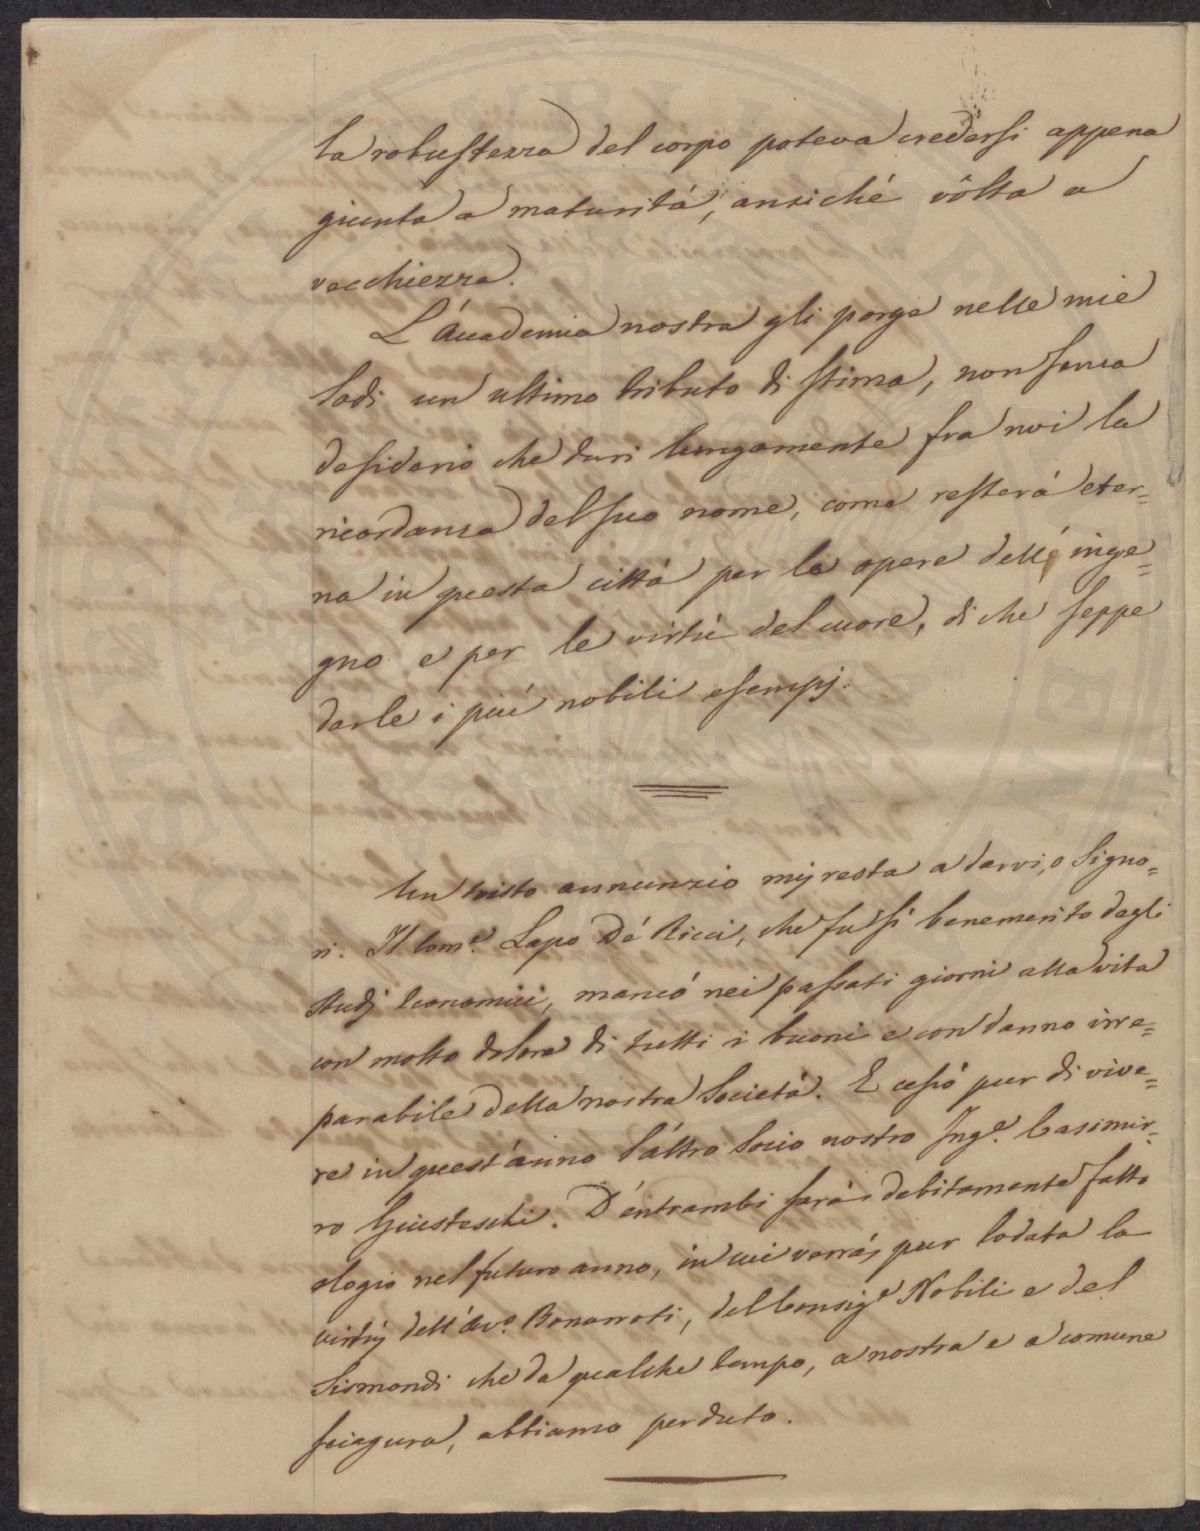 la robustezza del corpo poteva credersi appena
giunta a maturitá, anziché vôlta a
vecchiezza.
L'Accademia nostra gli porge nelle mie
lodi un'ultimo tributo di stima, non senza
desiderio che duri lungamente fra noi la
ricordanza del suo nome, come resterá eter=
na in questa cittá per le opere dell'inge=
gno e per le virtú del cuore, di che seppe
darle i piú nobili esempj.
Un tristo annunzio mi resta a darvi, o Signo=
ri. Il Com.e Lapo De' Ricci, che fu sí benemerito degli
studj economici, mancó nei passati giorni alla vita
con molto dolore di tutti i buoni e con danno irre=
parabile della nostra Societá. E cessó pur di vive=
re in quest'anno l'altro Socio nostro Ing.e Casimir=
ro Giusteschi. D'entrambi sará debitamente fatto
elogio nel futuro anno, in cui verrá pur lodata la
virtú dell'Avv.o Bonarroti, del Consig.e Nobili e del
Sismondi che da qualche tempo, a nostra e a comune
sciagura, abbiamo perduto.